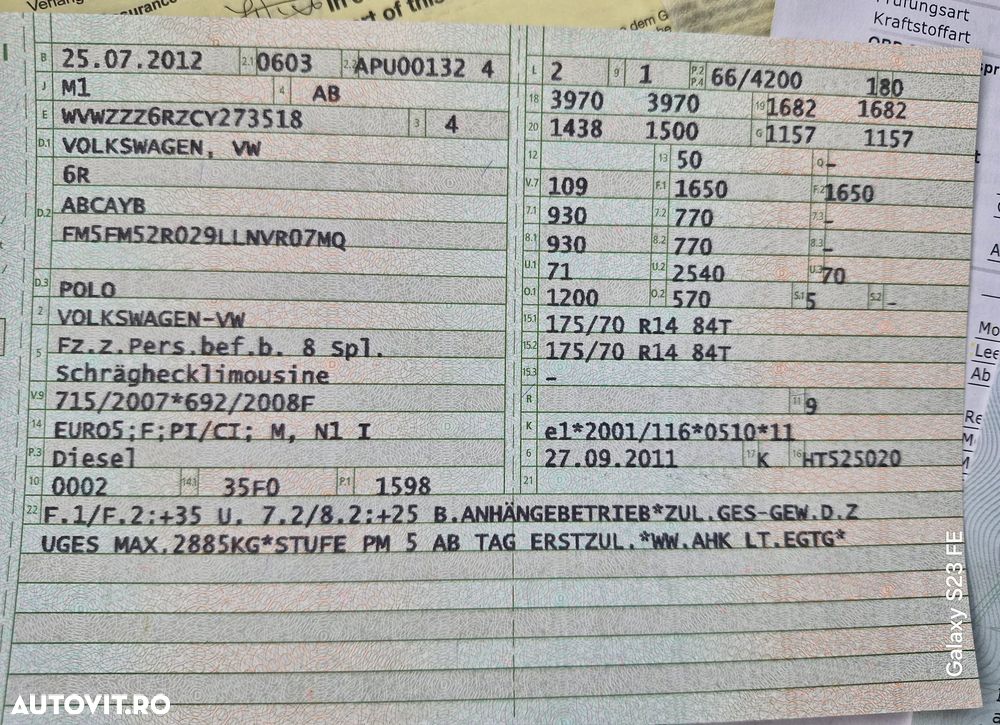 Verlang
surance
in
rt of this
dem G
Prüfungsart
Kraftstoffart
B 25.07.2012 2.1 0603 2.2 APU00132 4
J M1 4 AB
E WVWZZZ6RZCY273518 3 4
D.1 VOLKSWAGEN, VW
6R
D.2 ABCAYB
FM5FM52R029LLNVR07MQ
D.3 POLO
2 VOLKSWAGEN-VW
5 Fz.z.Pers.bef.b. 8 Spl.
Schräghecklimousine
V.9 715/2007*692/2008F
14 EURO5;F;PI/CI; M, N1 I
P.3 Diesel
10 0002 14.1 35F0 P.1 1598
L 2 9 1 P.2 P.4 66/4200 180
18 3970 3970 19 1682 1682
20 1438 1500 G 1157 1157
12 13 50 Q -
V.7 109 F.1 1650 F.2 1650
7.1 930 7.2 770 7.3 -
8.1 930 8.2 770 8.3 -
U.1 71 U.2 2540 U.3 70
O.1 1200 O.2 570 S.1 5 S.2 -
15.1 175/70 R14 84T
15.2 175/70 R14 84T
15.3 -
R 11 9
K e1*2001/116*0510*11
6 27.09.2011 17 K 16 HT525020
21
22 F.1/F.2:+35 U. 7.2/8.2:+25 B.ANHÄNGEBETRIEB*ZUL.GES-GEW.D.Z
UGES MAX.2885KG*STUFE PM 5 AB TAG ERSTZUL.*WW.AHK LT.EGTG*
Mo
Lee
Ab
Re
M
M
Galaxy S23 FE
AUTOVIT.RO